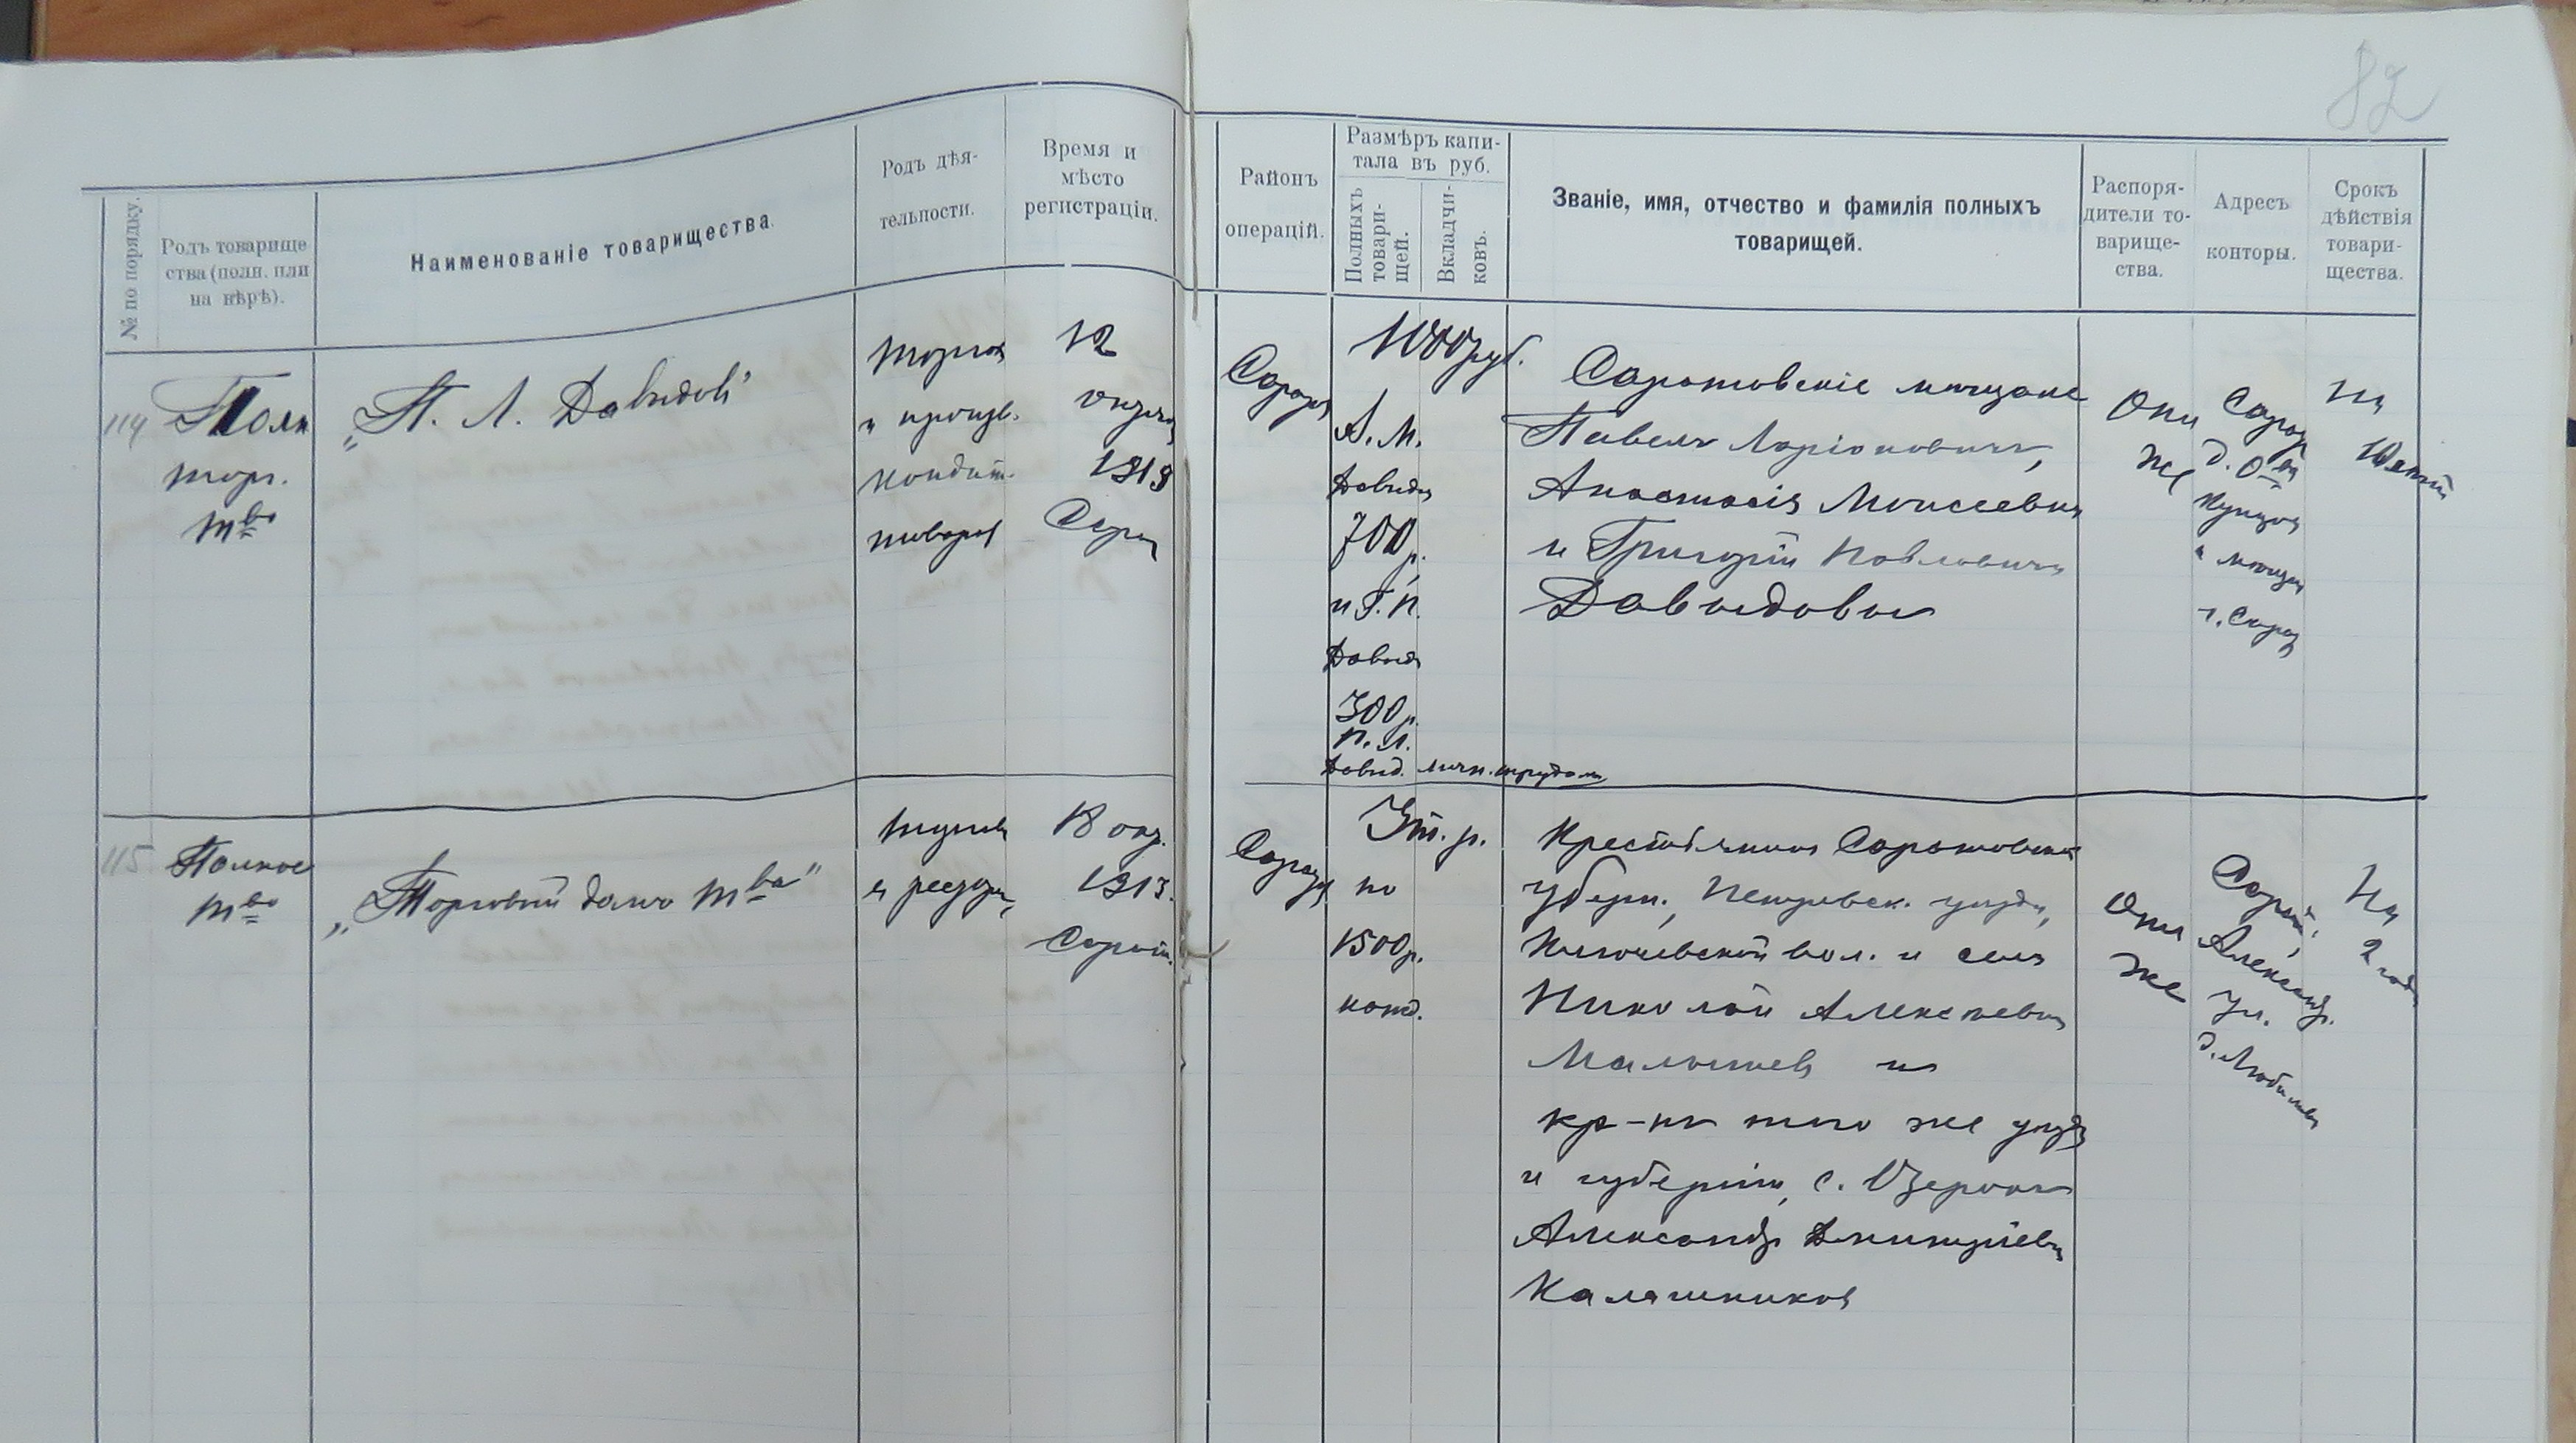 82
№ по порядку.
Родъ товарище
ства (полн. или
на вѣрѣ).
Наименованіе товарищества.
Родъ дѣя-
тельности.
Время и
мѣсто
регистраціи.
Районъ
операцій.
Размѣръ капи-
тала въ руб.
Полныхъ
товари-
щей.
Вкладчи-
ковъ.
Званіе, имя, отчество и фамилія полныхъ
товарищей.
Распоря-
дители то-
варище-
ства.
Адресъ
конторы.
Срокъ
дѣйствія
товари-
щества.
114
Полн
торг.
тво
„П. Л. Давыдовъ"
торгов
и произв.
кондит.
товаров
12
1913
Сарат
Сарат
1000 руб.
А. М.
Давыд
700 р.
и Г. П.
Давыд
300 р.
П. Л.
Давыд. личн. трудом
Саратовскіе мѣщане
Павелъ Ларіоновичъ,
Анастасія Моисеевна
и Григорій Павловичъ
Давыдовы
Они
же
Сарат
д. О-ва
купцов
и мѣщан
г. Сарат
На
10 лѣтъ
115
Полное
тво
„Торговый домъ тва"
1913.
Сарат.
18
Сарат
3 т. р.
по
1500 р.
кажд.
Крестьянинъ Саратовской
губерн., Петровск. уѣзда,
Ключевской вол. и села
Николай Алексѣевич
Малышев и
кр-нъ того же уѣзда
и губерніи, с. Озерокъ
Александр Дмитріевич
Калашников
Они
же
Сарат.,
Александр.
ул.
д.
На
2 года